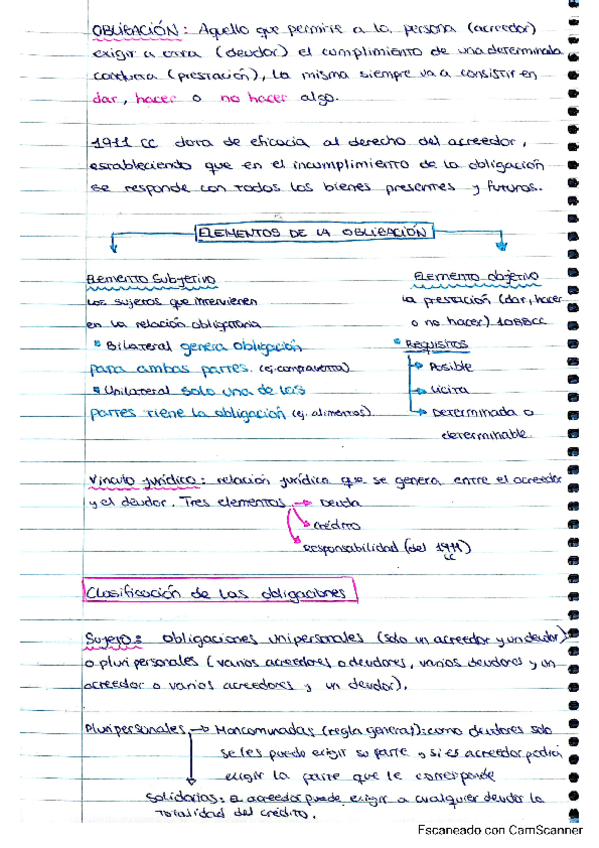 OBLIGACIÓN: Aquello que permite a la persona (acreedor)
exigir a otra (deudor) el cumplimiento de una determinada
conducta (prestación), la misma siempre va a consistir en
dar, hacer o no hacer algo.
1911 CC dota de eficacia al derecho del acreedor,
estableciendo que en el incumplimiento de la obligación
se responde con todos los bienes presentes y futuros.
ELEMENTOS DE LA OBLIGACIÓN
Elemento Subjetivo
Los sujetos que intervienen
en la relación obligatoria
Bilateral genera obligación
para ambas partes. (ej. compraventa)
Unilateral solo una de las
partes tiene la obligación (ej. alimentos)
Elemento objetivo
la prestación (dar, hacer
o no hacer) 1088CC
Requisitos
→ Posible
→ Lícita
→ Determinada o
determinable.
Vínculo jurídico: relación jurídica que se genera entre el acreedor
y el deudor. Tres elementos → Deuda
Crédito
Responsabilidad (del 1911)
CC
Clasificación de las obligaciones
Sujeto: obligaciones unipersonales (solo un acreedor y un deudor)
o pluripersonales (varios acreedores o deudores, varios deudores y un
acreedor o varios acreedores y un deudor).
Pluripersonales → Mancomunadas (regla general): como deudores solo
se les puede exigir su parte y si es acreedor podrá
exigir la parte que le corresponde
Solidarias: El acreedor puede exigir a cualquier deudor la
totalidad del crédito.
Escaneado con CamScanner